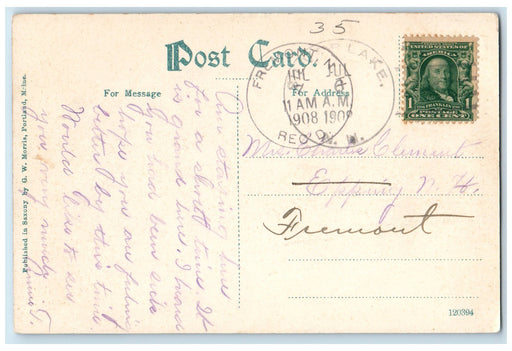 35
Post Card.
For Message
For Address
FREMONT
LAKE,
JUL JUL
7
11 AM A.M.
1908 1908
REC'D.
N. H.
UNITED STATES OF AMERICA
1 FRANKLIN 1
ONE CENT
Am staying here
for a short time. It
is grand here. I heard
you have been sick
hope you are feeling
better by this time.
Would like to see
you very much.
T.
Mrs. Charles Clement
Epping N. H.
Fremont
Published in Saxony by G. W. Morris, Portland, Maine.
120394